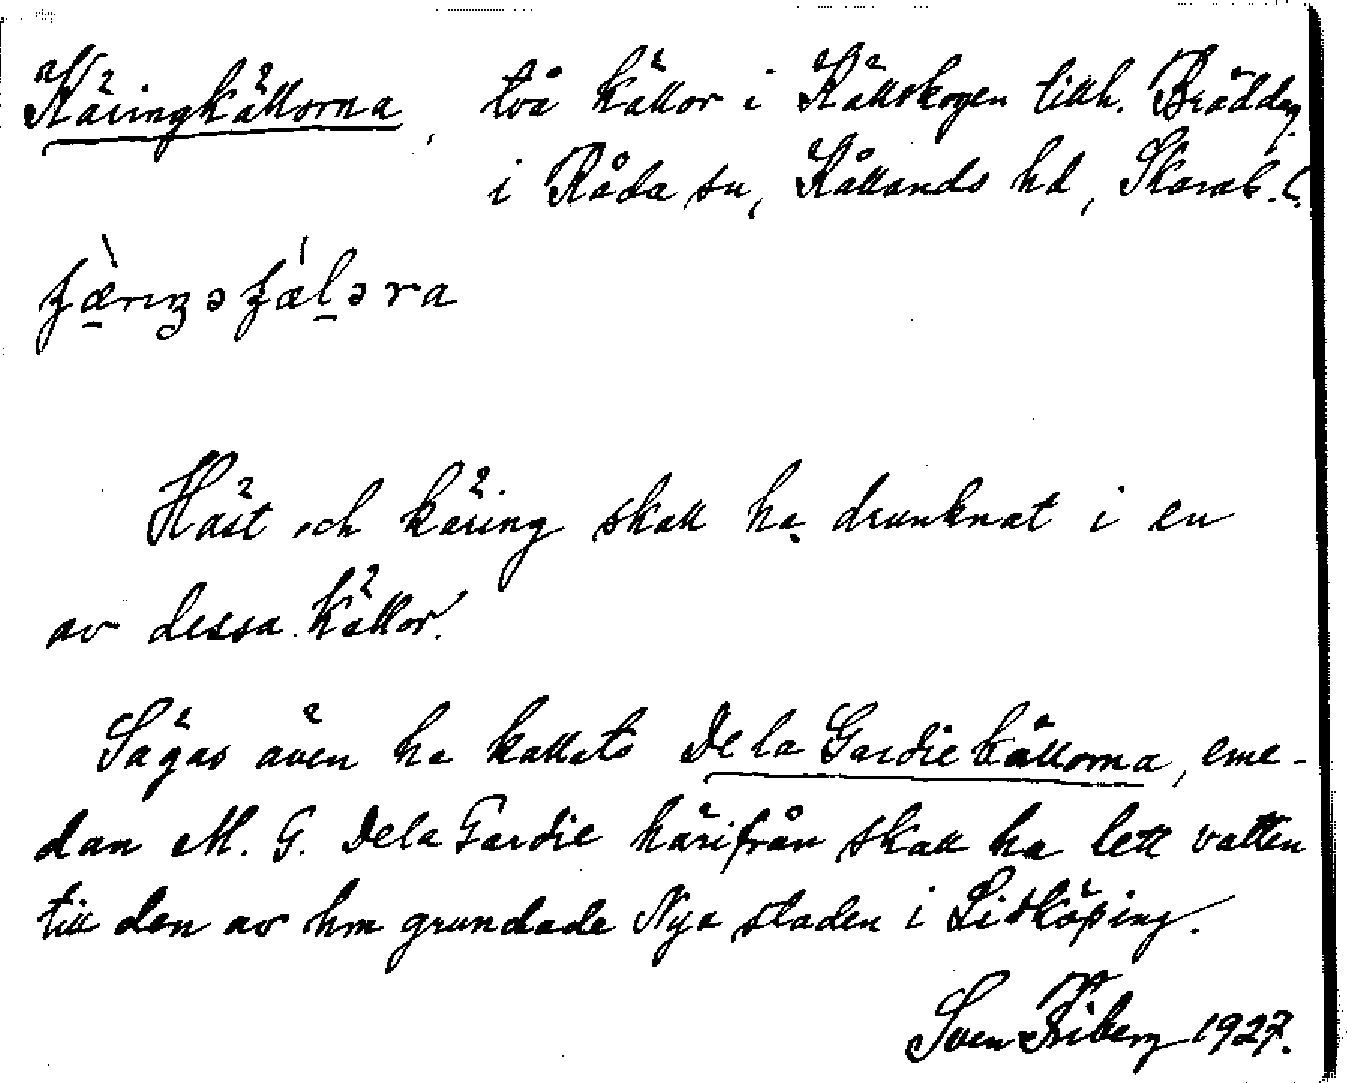 Käringkällorna, två källor i Källskogen tillh. Brädday.
i Råda sn, Kållands hd, Skarab. l.
Häst och käring skall ha drunknat i en
av dessa källor.
Sägas även ha kallats De la Gardiekällorna, eme-
dan M. G. De la Gardie härifrån skall ha lett vatten
till den av hm grundade Nya staden i Lidköping.
Sven Kiberg 1927.